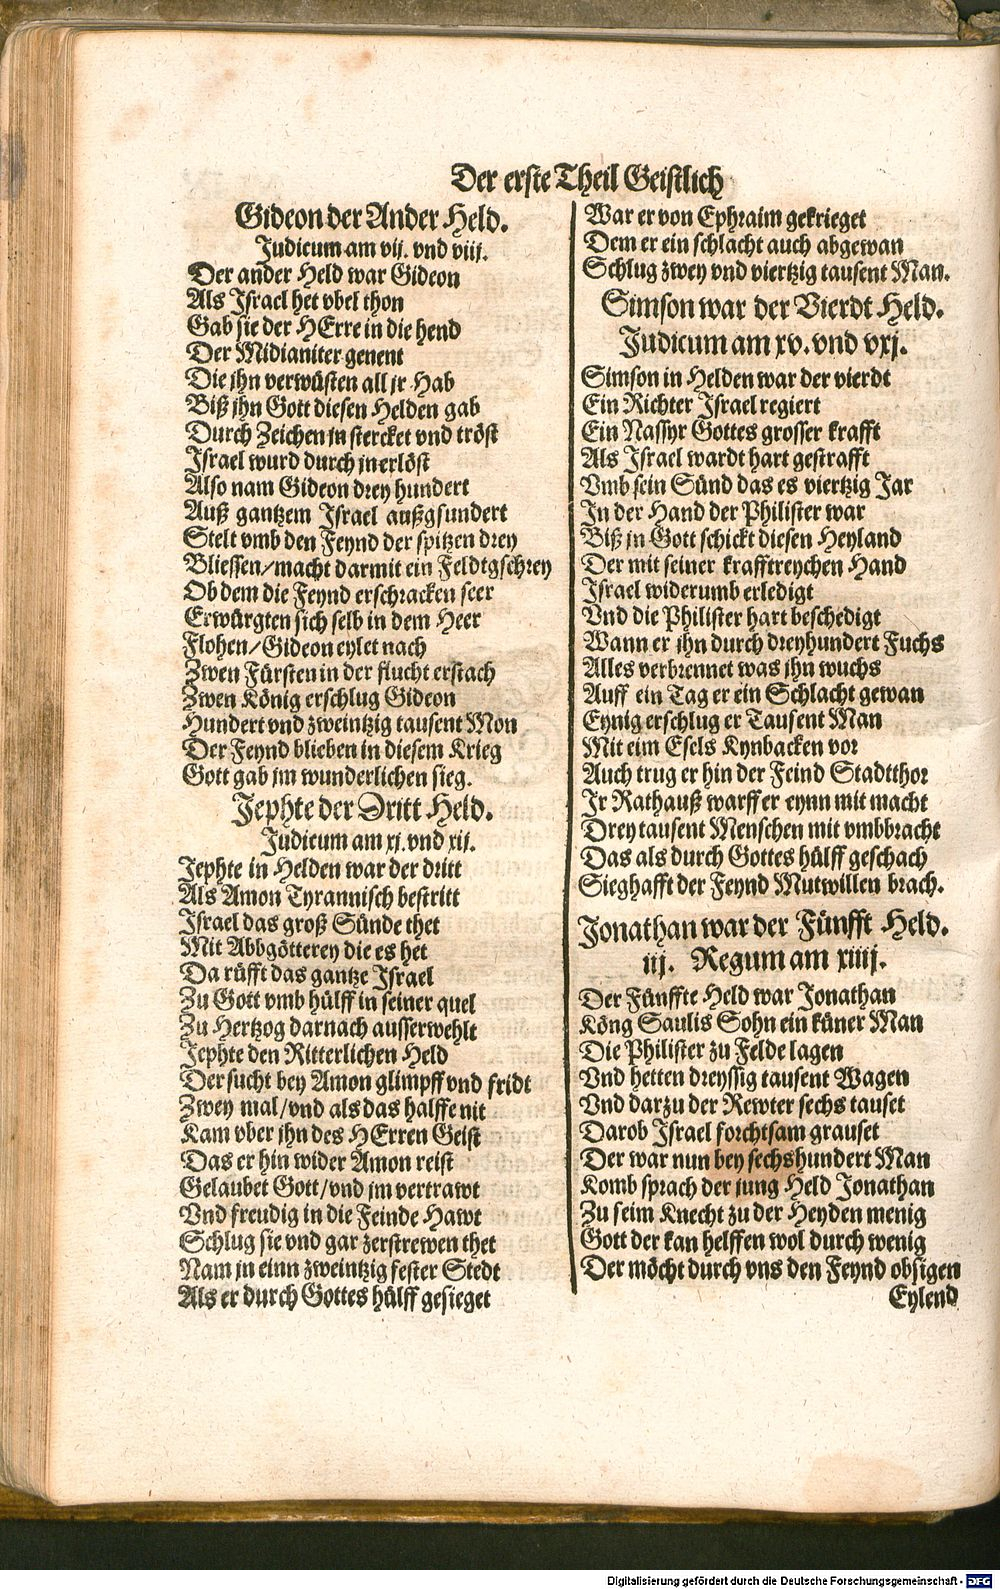 Der erste Theil Geistlich
Gideon der Ander Held.
Judicum am vij. vnd viij.
Der ander Held war Gideon
Als Israel het vbel thon
Gab sie der HErre in die hend
Der Midianiter genent
Die jhn verwüsten all jr Hab
Biß jhn Gott diesen Helden gab
Durch Zeichen jn stercket vnd tröst
Israel wurd durch jn erlöst
Also nam Gideon drey hundert
Auß gantzem Israel außgsundert
Stelt vmb den Feynd der spitzen drey
Bliessen/macht darmit ein Feldtgschrey
Ob dem die Feynd erschracken seer
Erwürgten sich selb in dem Heer
Flohen/Gideon eylet nach
Zwen Fürsten in der flucht erstach
Zwen König erschlug Gideon
Hundert vnd zweintzig tausent Mon
Der Feynd blieben in diesem Krieg
Gott gab jm wunderlichen sieg.
Jephte der Dritt Held.
Judicum am xj. vnd xij.
Jephte in Helden war der dritt
Als Amon Tyrannisch bestritt
Israel das groß Sünde thet
Mit Abbgötterey die es het
Da rüfft das gantze Israel
Zu Gott vmb hülff in seiner quel
Zu Hertzog darnach ausserwehlt
Jephte den Ritterlichen Held
Der sucht bey Amon glimpff vnd fridt
Zwey mal/vnd als das halffe nit
Kam vber jhn des HErren Geist
Das er hin wider Amon reist
Gelaubet Gott/vnd jm vertrawt
Vnd freudig in die Feinde Hawt
Schlug sie vnd gar zerstrewen thet
Nam jn einn zweintzig fester Stedt
Als er durch Gottes hülff gesieget
War er von Ephraim gekrieget
Dem er ein schlacht auch abgewan
Schlug zwey vnd viertzig tausent Man.
Simson war der Vierdt Held.
Judicum am xv. vnd vxj.
Simson in Helden war der vierdt
Ein Richter Israel regiert
Ein Nassyr Gottes grosser krafft
Als Israel wardt hart gestrafft
Vmb sein Sünd das es viertzig Jar
In der Hand der Philister war
Biß jn Gott schickt diesen Heyland
Der mit seiner krafftreychen Hand
Israel widerumb erledigt
Vnd die Philister hart beschedigt
Wann er jhn durch dreyhundert Fuchs
Alles verbrennet was jhn wuchs
Auff ein Tag er ein Schlacht gewan
Eynig erschlug er Tausent Man
Mit eim Esels Kynbacken vor
Auch trug er hin der Feind Stadtthor
Jr Rathauß warff er eynn mit macht
Drey tausent Menschen mit vmbbracht
Das als durch Gottes hülff geschach
Sieghafft der Feynd Mutwillen brach.
Jonathan war der Fünfft Held.
iij. Regum am xiiij.
Der Fünffte Held war Jonathan
Köng Saulis Sohn ein küner Man
Die Philister zu Felde lagen
Vnd hetten dreyssig tausent Wagen
Vnd darzu der Rewter sechs tauset
Darob Israel forchtsam grauset
Der war nun bey sechshundert Man
Komb sprach der jung Held Jonathan
Zu seim Knecht zu der Heyden menig
Gott der kan helffen wol durch wenig
Der möcht durch vns den Feynd obsigen
Eylend
Digitalisierung gefördert durch die Deutsche Forschungsgemeinschaft - DFG